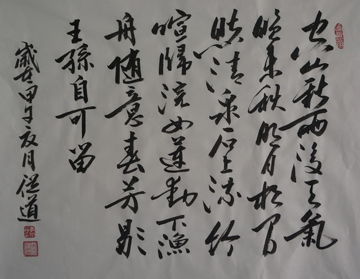 空山秋雨後天氣
晚来秋明月松间
照清泉石上流竹
喧歸浣女蓮動下漁
舟隨意春芳歇
王孫自可留
歲在甲子夏月從道